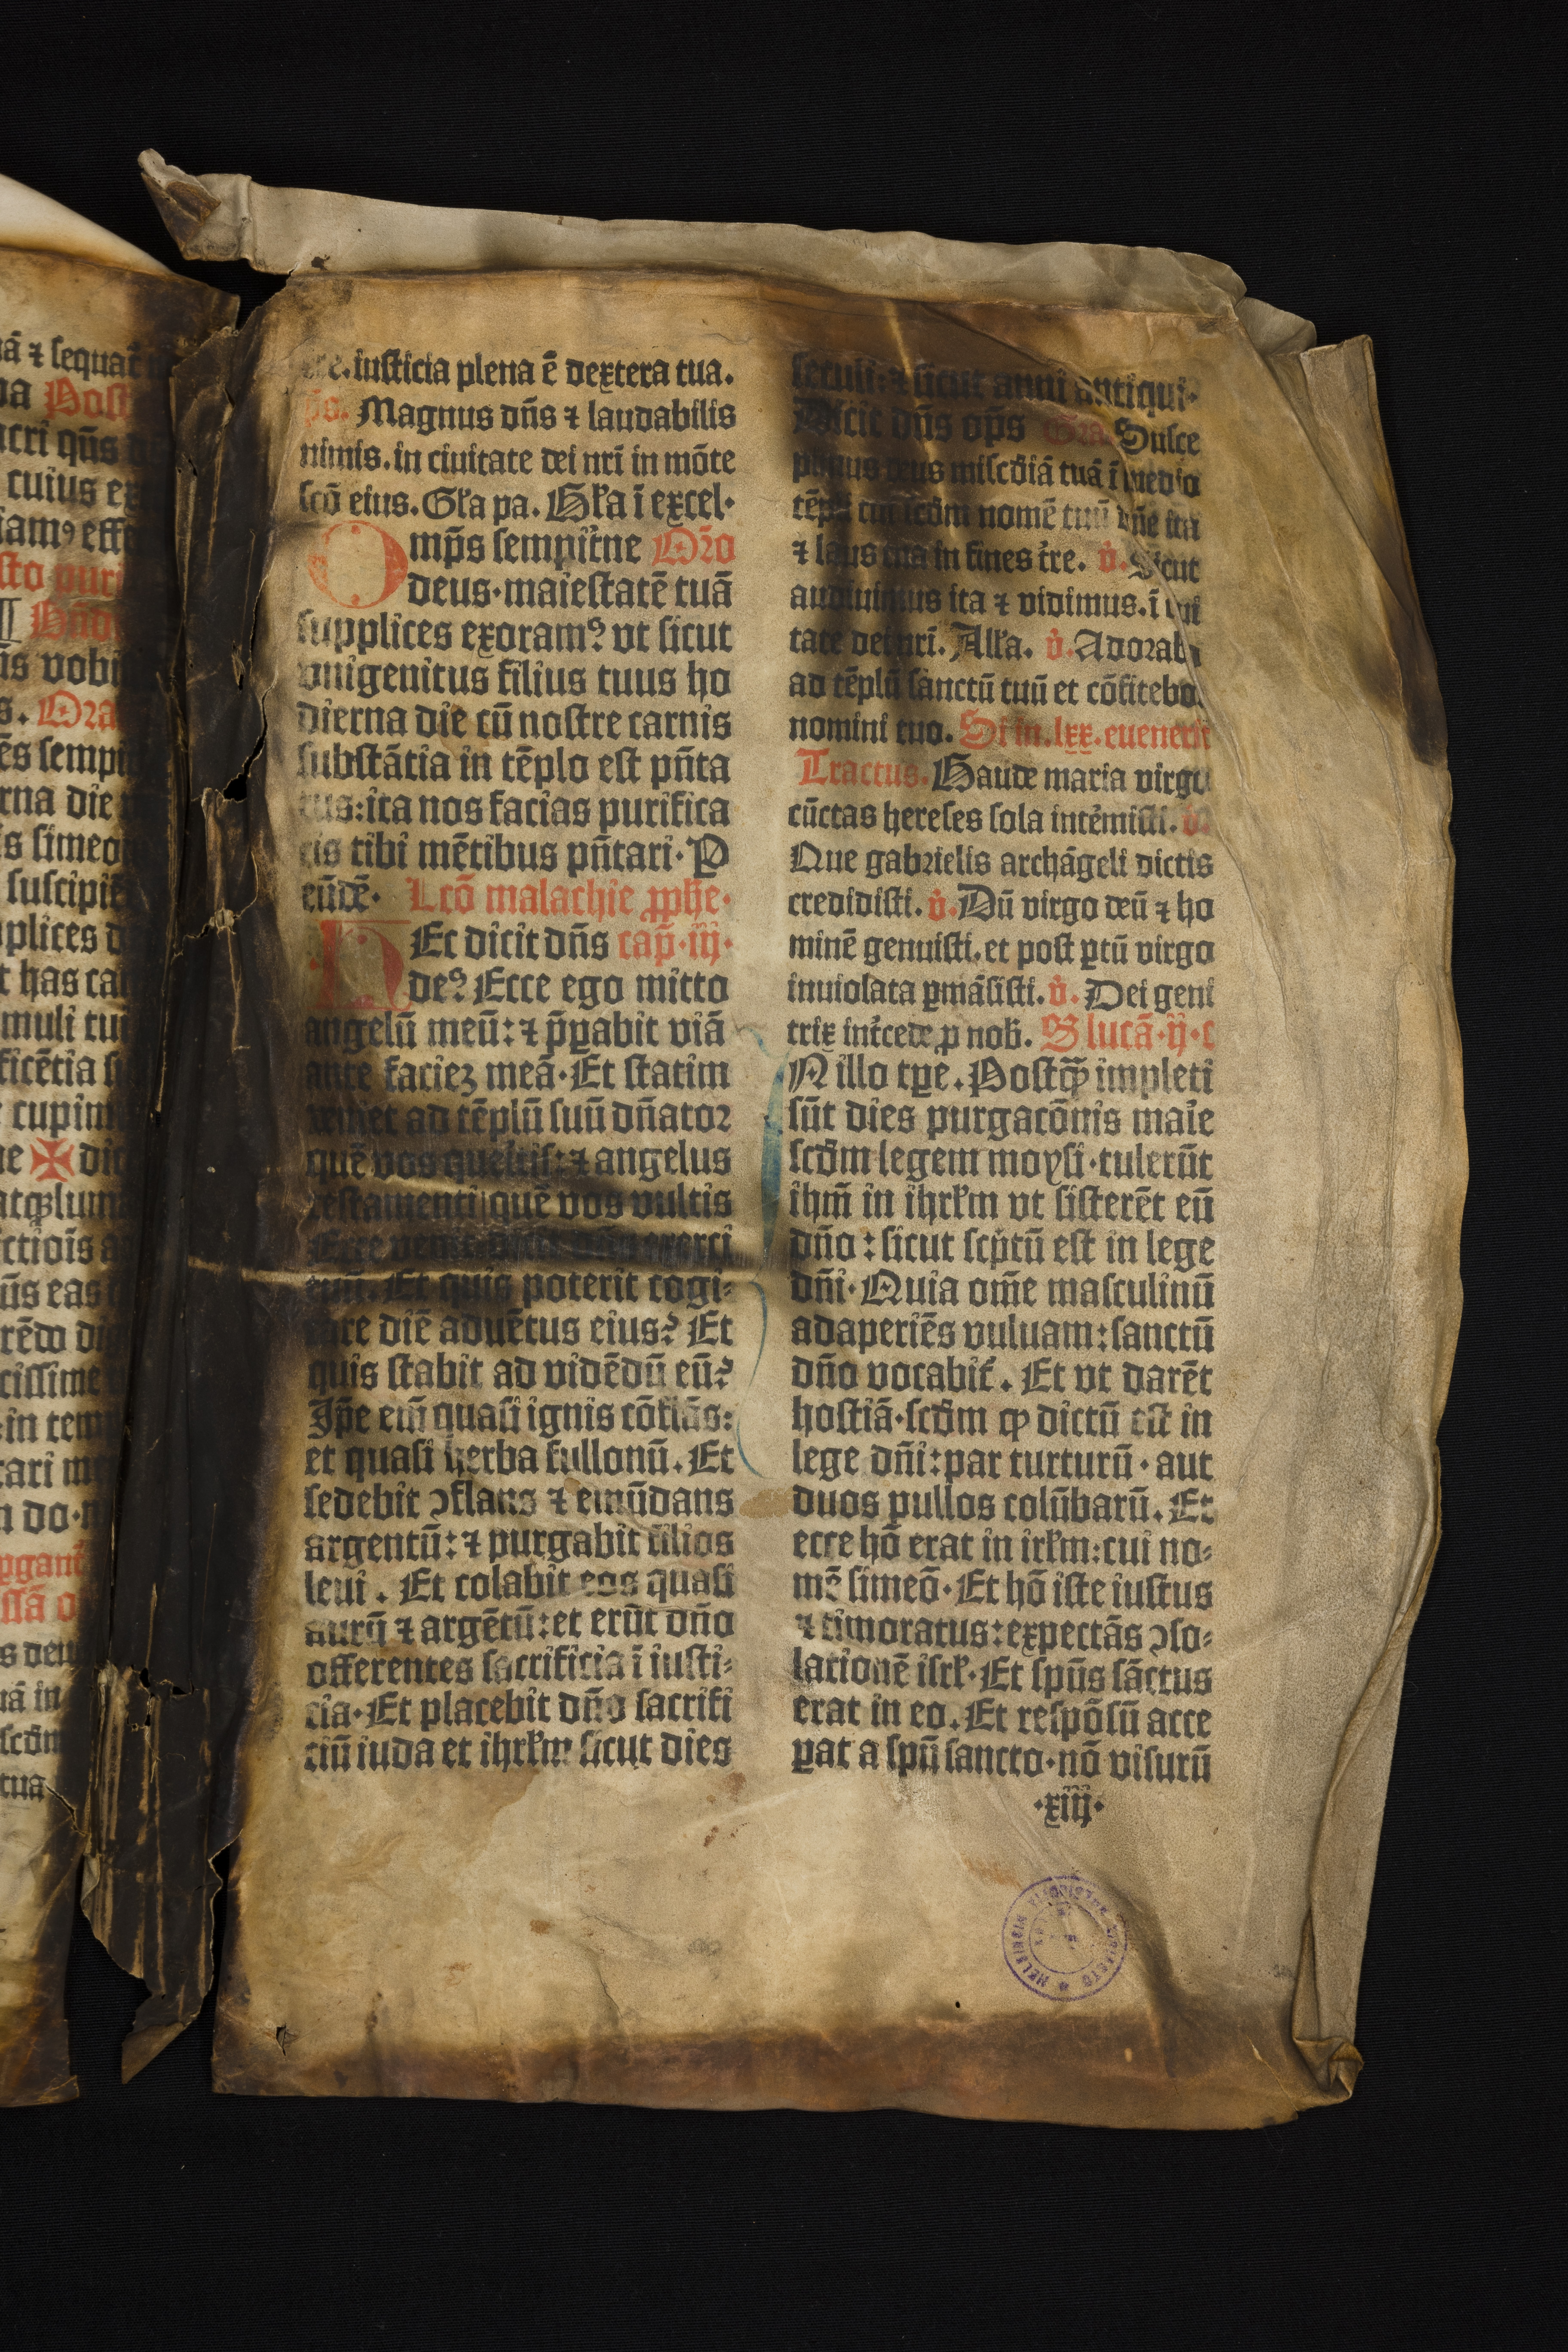 ā ⁊ sequat̄
Post
acri qn̄s
cuius
iam⁹ eff
sto puri
ūs vobi
s. Ora
ēs sempi
rna die
is simeo
suscipi
plices
t has ca
muli tui
ficētia
cupim
ne ✠ di
lum
ctiois
ūs eas
rēdo di
cissime
in tem
tari m
do
pgant̄
ssā o
s deu
uā in
scd̄m
tua
iusticia plena ē dextera tua.
ps. Magnus dn̄s ⁊ laudabilis
nimis. in ciuitate dei nr̄i in mōte
scō eius. Gl'a pa. Gl'a ī excel·
Omp̄s sempit̄ne Oro
deus·maiestatē tuā
supplices exoram⁹ vt sicut
vnigenitus filius tuus ho
dierna die cū nostre carnis
substātia in tēplo est pn̄ta
tus:ita nos facias purifica
tis tibi mētibus pn̄tari·P
eūdē· Lcō malachie ꝓphe·
HEc dicit dn̄s cap̄·iij·
de⁹ Ecce ego mitto
angelū meū:⁊ p̄pabit viā
ante faciez meā·Et statim
veniet ad tēplū suū dn̄ator
quē vos queritis:⁊ angelus
testamenti quē vos vultis
Ecce venit exerci
tuū. Et quis poterit cogi⸗
tare diē aduētus eius? Et
quis stabit ad vidēdū eū?
Ip̄e em̄ quasi ignis cōflās:
et quasi herba fullonū. Et
sedebit ↄflans ⁊ emūdans
argentū:⁊ purgabit filios
leui. Et colabit eos quasi
aurū ⁊ argētū:et erūt dn̄o
offerentes sacrificia ī iusti⸗
cia·Et placebit dn̄o sacrifi
ciū iuda et ihrl'm sicut dies
seculi:⁊ sicut anni antiqui·
Dicit dn̄s op̄s Gra. Susce
pimus deus miscd̄iā tuā ī medio
tēpli tui scd̄m nomē tuū dn̄e ita
⁊ laus tua in fines t̄re. v̉. Sicut
audiuimus ita ⁊ vidimus. ī ciui
tate dei nr̄i. All'a. v̉. Adorabo
ad tēplū sanctū tuū et cōfitebo.
nomini tuo. Si in .lxx. euenerit
Tractus. Gaude maria virgo
cūctas hereses sola intēmisti. v̉.
Que gabrielis archāgeli dictis
credidisti. v̉. Dū virgo deū ⁊ ho
minē genuisti. et post ꝑtū virgo
inuiolata ꝑmāsisti. v̉. Dei geni
trix int̄cede ꝓ nob̄. S lucā·ij·c
IN illo tꝑe. Postqꝫ impleti
sūt dies purgacōnis marie
scd̄m legem moysi·tulerūt
ihm̄ in ihrl'm vt sisterēt eū
dn̄o:sicut scp̄tū est in lege
dn̄i·Quia om̄e masculinū
adaperiēs vuluam:sanctū
dn̄o vocabit̄. Et vt darēt
hostiā·scd̄m ꝙ dictū est in
lege dn̄i:par turturū·aut
duos pullos colūbarū. Et
ecce hō erat in irl'm:cui no⸗
mē simeō·Et hō iste iustus
⁊ timoratus:expectās ↄso⸗
lationē isrl'·Et spūs sāctus
erat in eo. Et respōsū acce
ꝑat a spū sancto·nō visurū
·xiij·